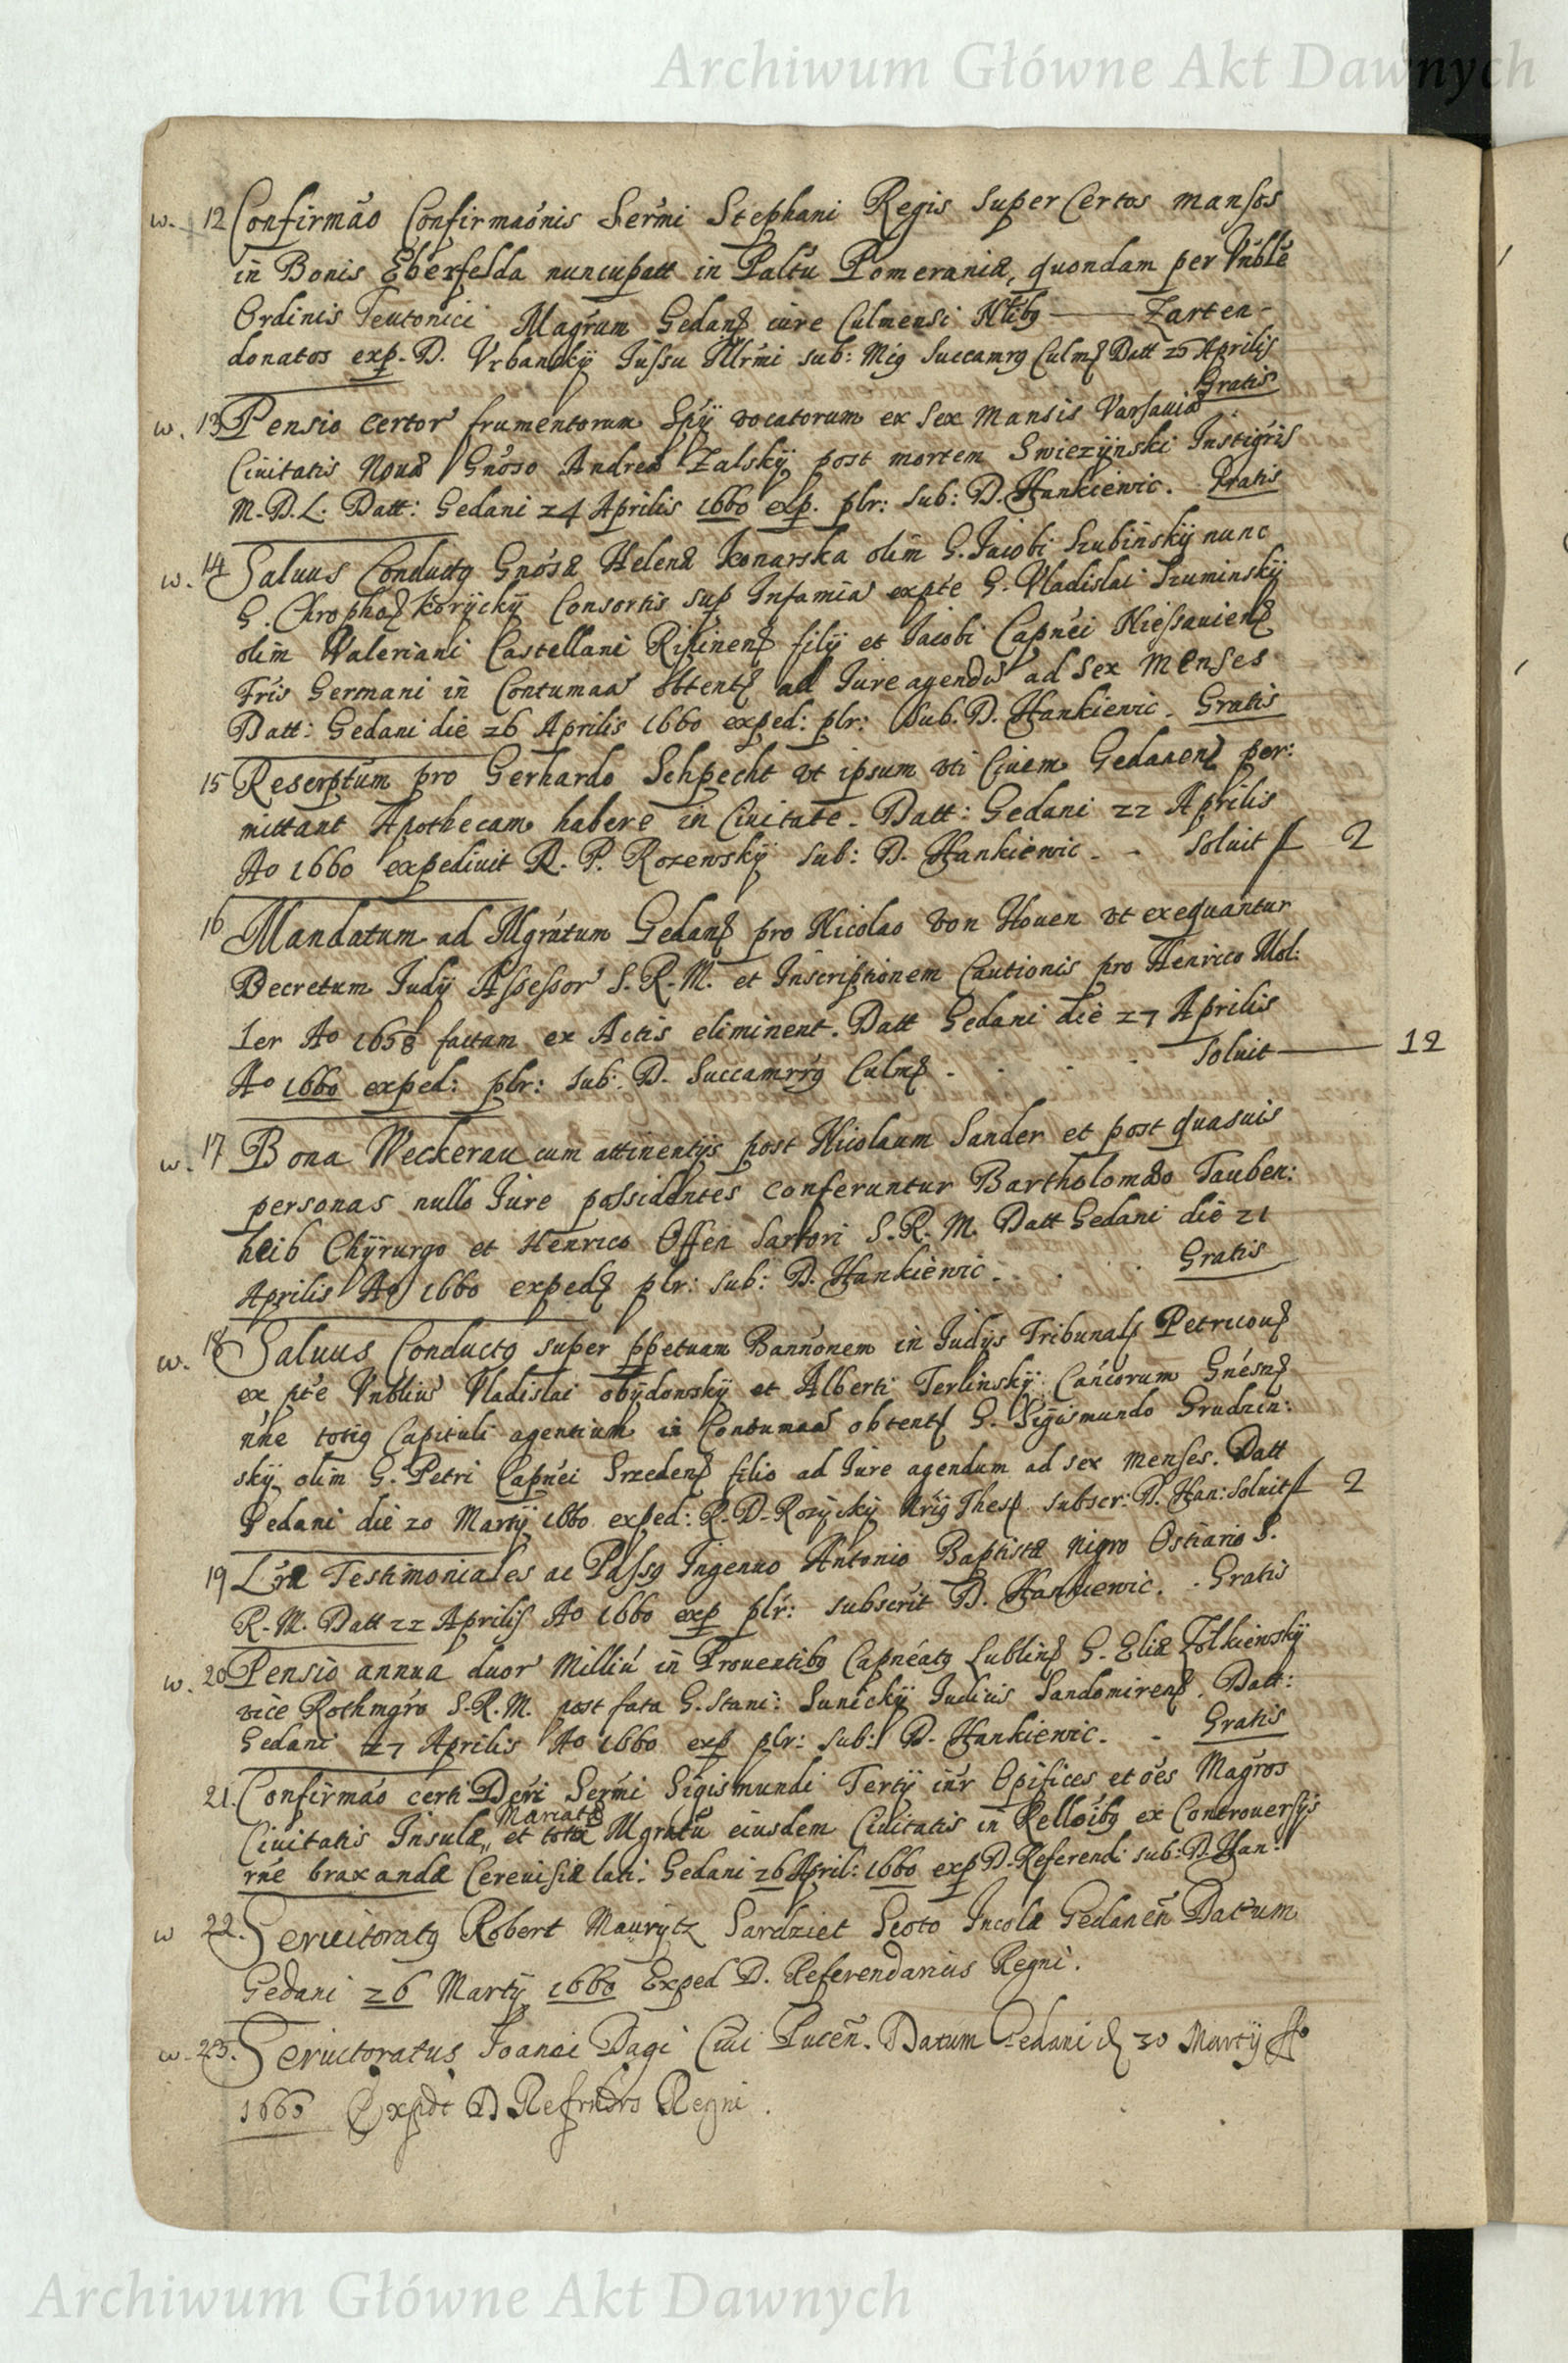 Archiwum Główne Akt Dawnych
w. 12 Confirmao Confirmaonis Sermi Stephani Regis super Certos mansos
in Bonis Eberfelda nuncupatt in Paltu Pomeraniæ, quondam per Vnble
Ordinis Teutonici Magrum Gedanẜ iure Culmensi Ntibg —— Zarten-
donatos exp. D. Vrbanskÿ Jussu Illrmi sub: Mig Succamrg Culmẜ Datt 25 Aprilis
Gratis
w. 13 Pensio certor frumentorum Spÿ vocatorum ex sex mansis Varsauiæ
Ciuitatis Nouæ Gnoso Andreæ Zalskÿ post mortem Swiezÿnski Instigris
M. D. L. Datt: Gedani 24 Aprilis 1660 exp. plr: sub: D. Hankiewic. Gratis
w. 14 Saluus Conductg Gnosæ Helenæ Konarska olim G. Jacobi Szubinskÿ nunc
G. Chrophoẜ Korÿckÿ Consortis sup Infamia expte G. Vladislai Szuminskÿ
olim Valeriani Castellani Ripinenẜ filÿ et Jacobi Capnei Niessauienẜ
Fris Germani in Contumaa obtentẜ ad Jure agendu ad sex menses
Datt: Gedani die 26 Aprilis 1660 exped: plr: Sub. D. Hankiewic. Gratis
15 Rescrptum pro Gerhardo Schpecht vt ipsum vti Ciuem Gedanenẜ per:
mittant Apothecam habere in Ciuitate. Datt: Gedani 22 Aprilis
Ao 1660 expediuit R. P. Rozewskÿ sub: D. Hankiewic. - soluit f 2
16 Mandatum ad Mgratum Gedanẜ pro Nicolao von Houen vt exequantur
Decretum Judÿ Assessor S. R. M. et Inscriptionem Cautionis pro Henrico Mol:
ler Ao 1658 factam ex Actis eliminent. Datt Gedani die 27 Aprilis
Ao 1660 exped: plr: sub: D. Succamrrg Culmẜ . . . . soluit —— 12
w. 17 Bona Weckerau cum attinentÿs post Nicolaum Sander et post quasuis
personas nullo Jure possidentes conferuntur Bartholomæo Tauben:
heib Chÿrurgo et Henrico Offen Sartori S. R. M. Datt Gedani die 21
Aprilis Ao 1660 expedẜ plr: sub: D. Hankiewic. . . . Gratis
w. 18 Saluus Conductg super ppetuam Bannonem in Judÿs Tribunalẜ Petricouẜ
ex pte Vnbliu Vladislai obÿdowskÿ et Alberti Terlinskÿ Cancorum Gnesnẜ
nne totig Capituli agentium in Contumaa obtentẜ G. Sigismundo Grudzin:
skÿ olim G. Petri Capnei Srzedenẜ filio ad Jure agendum ad sex menses. Datt
Gedani die 20 Martÿ 1660 exped: R. D. Rozÿckÿ Nrig Thesẜ subscr: D. Han: soluit f 2
19 Lræ Testimoniales ac Passg Ingenuo Antonio Baptistæ Nigro Ostiario S.
R. M. Datt 22 Aprilis Ao 1660 exp plr: subscrit D. Hankiewic. . Gratis
w. 20 Pensio annua duor Milliu in Prouentibg Capneatg Lublinẜ G. Eliæ Zolkiewskÿ
vice Rothmgro S. R. M. post fata G. Stani: Sunickÿ Judicis Sandomirenẜ. Datt:
Gedani 27 Aprilis Ao 1660 exp plr: sub: D. Hankiewic. - Gratis
21. Confirmao certi Dcri Sermi Sigismundi Tertÿ inr Opifices et oes Magros
Mariatg
Ciuitatis Insulæ,, et totæ Mgratu eiusdem Ciuitatis in Relloibg ex Controuersÿs
rne braxandæ Cereuisiæ lati. Gedani 26 April: 1660 exp D. Referend: sub: D. Han:
w 22. Seruitoratg Robert Maurÿtz Sardziet Scoto Incolæ Gedanen Datum
Gedani 26 Martÿ 1660 Exped D. Referendarius Regni.
w. 23. Seruitoratus Joanni Dagi Ciui Pucen. Datum Gedani d 30 Martÿ Ao
1660 Expdt D Refrndrs Regni.
Archiwum Główne Akt Dawnych